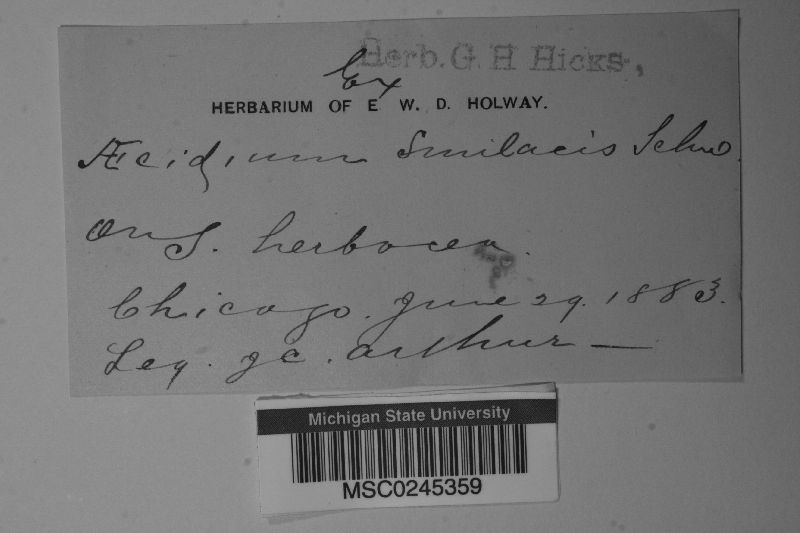 Herb. G H Hicks,
Ex
HERBARIUM OF E W. D. HOLWAY.
Æcidium Smilacis Schw.
on S. herbacea.
Chicago. June 29. 1883.
Leg. J C. Arthur —
Michigan State University
MSC0245359